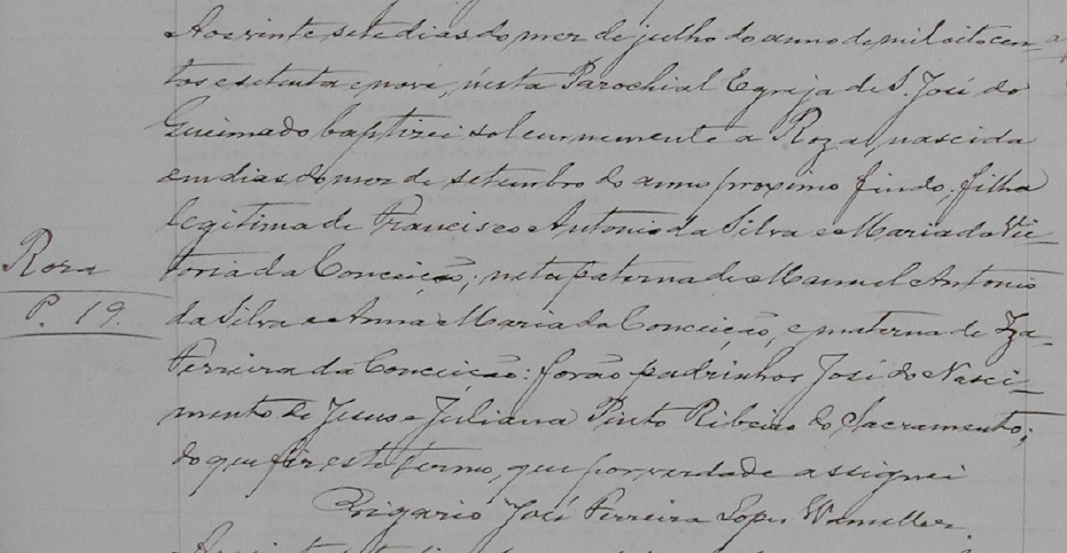 Aos vinte sete dias do mez de julho do anno de mil oitocen-
tos e setenta e nove, nésta Parochial Egreja de S. José do
Queimado baptizei solemnemente a Roza, nascida
em dias do mez de setembro do anno proximo findo, filha
legitima de Francisco Antonio da Silva e Maria da Vic-
toria da Conceição; neta paterna de Manuel Antonio
da Silva e Anna Maria da Conceição, e materna de Iza-
Ferreira da Conceição: forão padrinhos José do Nasci-
mento de Jesus e Juliana Pinto Ribeiro do Sacramento;
do que fiz este termo, que por verdade assignei
O Vigario José Ferreira Lopes
Roza
P. 19.